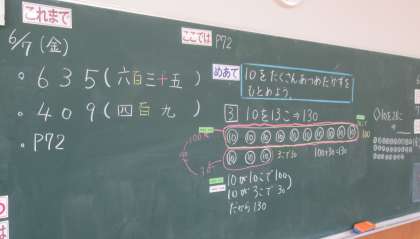 これまで
6/7(金)
・635(六百三十五)
・409(四百九)
・P72
ここでは P72
めあて
10をたくさんあつめたかずを
ひとめよう。
3 10を13こ⇒130
10 10 10 10 10 10 10 10 10 10
100
10 10 10 3こで30 100+30=130
10が10こで100
10が3こで30
だから130